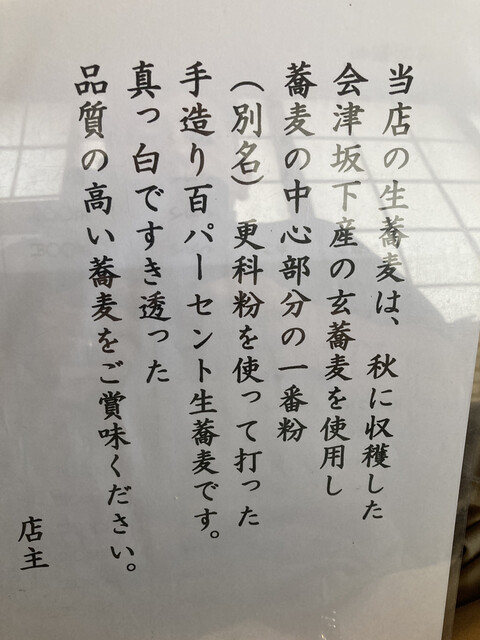 当店の生蕎麦は、秋に収穫した
会津坂下産の玄蕎麦を使用し
蕎麦の中心部分の一番粉
（別名）更科粉を使って打った
手造り百パーセント生蕎麦です。
真っ白ですき透った
品質の高い蕎麦をご賞味ください。
店主